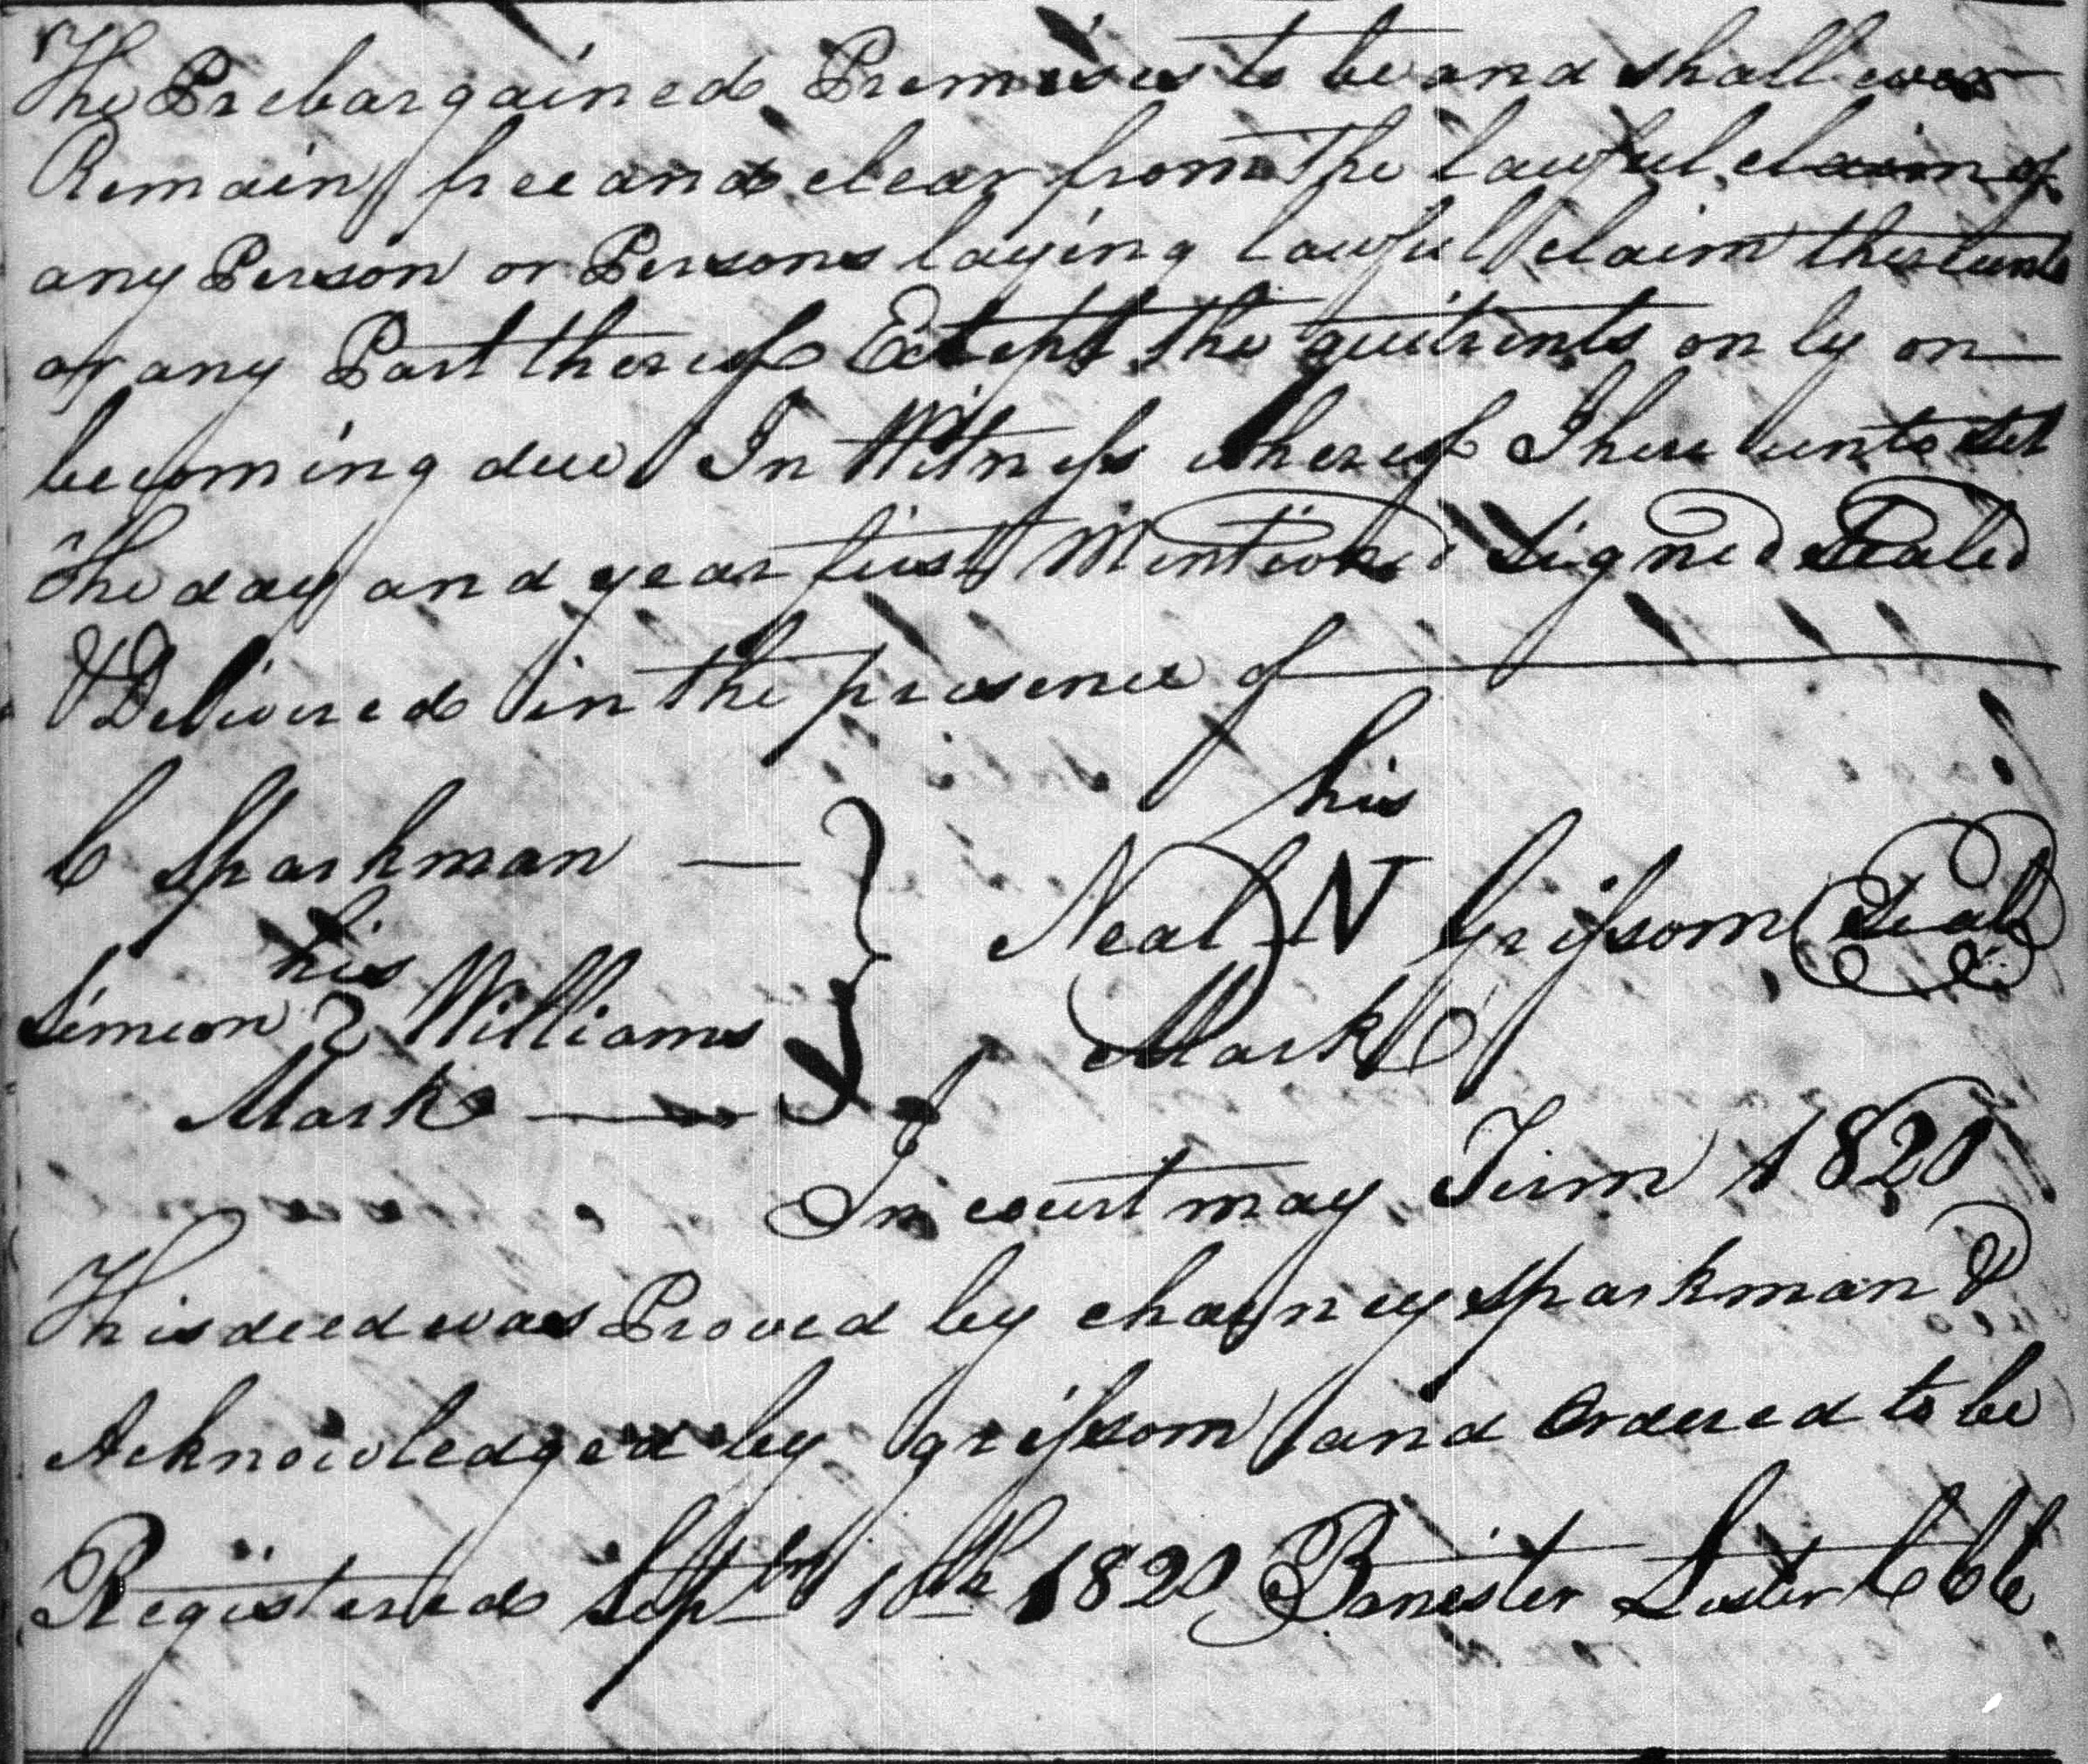 The Prebargained Premises to be and shall ever
Remain free and clear from the lawful claim of
any Person or Persons laying lawful claim thereunto
or any Part thereof Except the quitrents only on
becoming due In Witness whereof I here unto set
The day and year first Mentioned Signed Sealed
& Delivered in the presence of
his
C Sparkman Neal N Grissom Seal
his
Simeon Williams Mark
Mark
In court may Term 1820
This deed was Proved by charney Sparkman &
Acknowledged by grissom and Ordered to be
Registered Septbr 10th 1820 Banester Luster